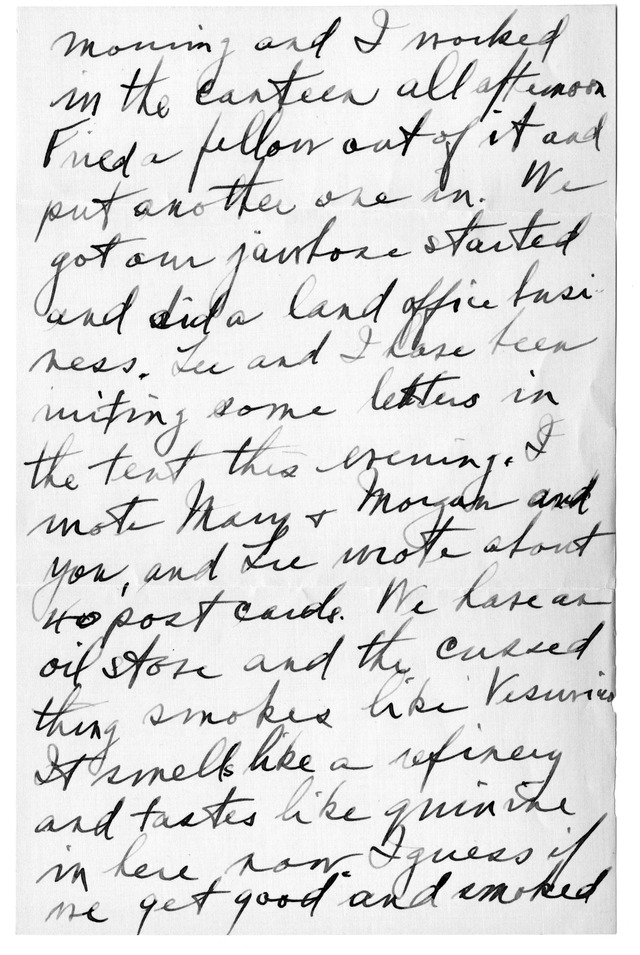 morning and I worked
in the canteen all afternoon
Fired a fellow out of it and
put another one in. We
got our jawbone started
and did a land office busi-
ness. Lee and I have been
writing some letters in
the tent this evening. I
wrote Mary & Morgan and
you, and Lee wrote about
40 post cards. We have an
oil stove and the cussed
thing smokes like Vesuvius
It smells like a refinery
and tastes like quinine
in here now I guess if
we get good and smoked